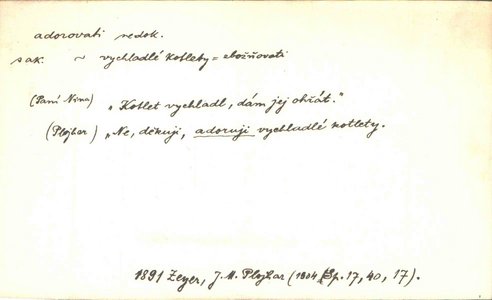 adorovati nedok.
s ak. ~ vychladlé kotlety = zbožňovati
(Paní Nina) „Kotlet vychladl, dám jej ohřát."
(Plojhar) „Ne, děkuji, adoruji vychladlé kotlety.
1891 Zeyer, J. M. Plojhar (1904, Sp. 17, 40, 17).